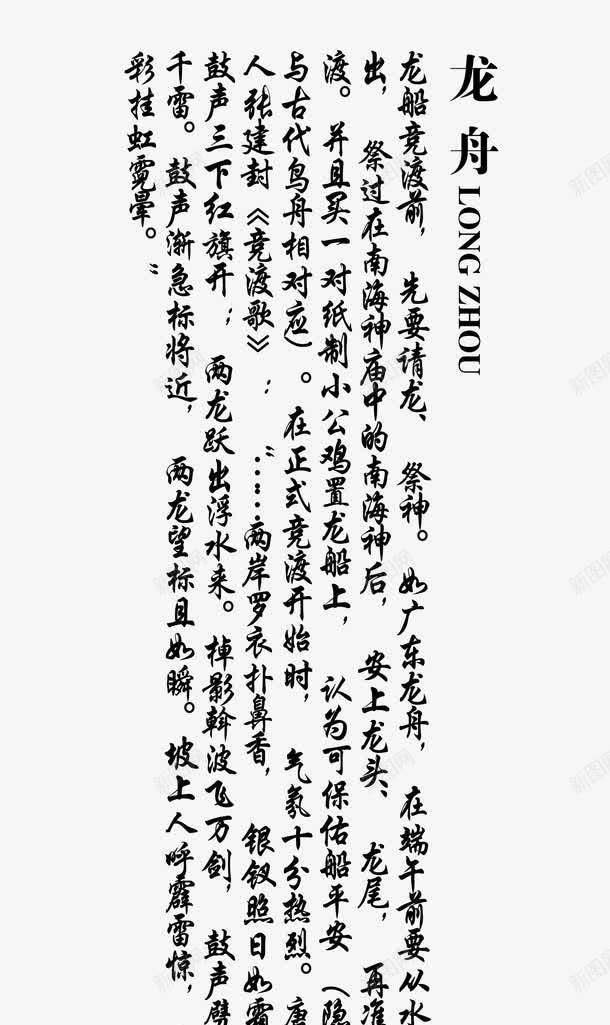 龙舟 LONG ZHOU
龙船竞渡前，先要请龙、祭神。如广东龙舟，在端午前要从水
出，祭过在南海神庙中的南海神后，安上龙头、龙尾，再准
渡。并且买一对纸制小公鸡置龙船上，认为可保佑船平安（隐
与古代鸟舟相对应）。在正式竞渡开始时，气氛十分热烈。唐
人张建封《竞渡歌》：“……两岸罗衣扑鼻香，银钗照日如霜
鼓声三下红旗开；两龙跃出浮水来。棹影斡波飞万剑，鼓声劈
千雷。鼓声渐急标将近，两龙望标且如瞬。坡上人呼霹雷惊，
彩挂虹霓晕。”